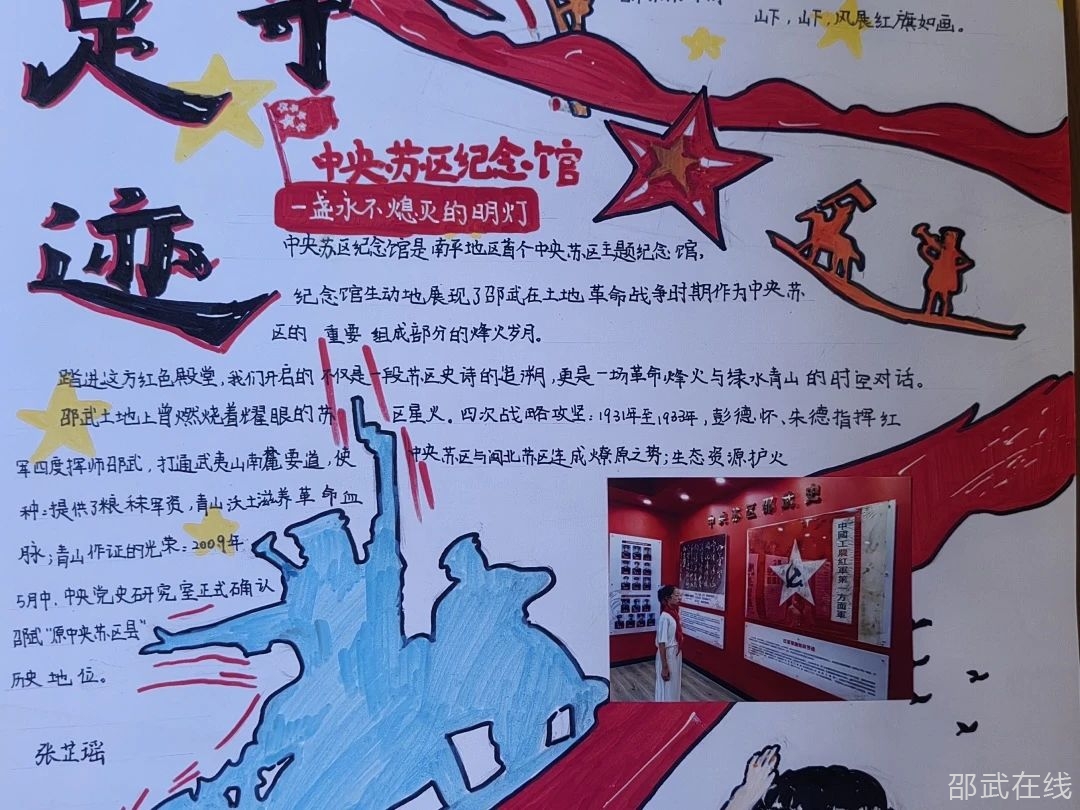 足寻
迹
山下,山下,风展红旗如画。
中央苏区纪念馆
一盏永不熄灭的明灯
中央苏区纪念馆是南平地区首个中央苏区主题纪念馆,
纪念馆生动地展现了邵武在土地革命战争时期作为中央苏
区的重要组成部分的烽火岁月。
踏进这方红色殿堂,我们开启的不仅是一段苏区史诗的追溯,更是一场革命烽火与绿水青山的时空对话。
邵武土地上曾燃烧着耀眼的苏区星火。四次战略攻坚:1931年至1933年,彭德怀、朱德指挥红
军四度挥师邵武,打通武夷山南麓要道,使中央苏区与闽北苏区连成燎原之势;生态资源护火
种:提供了粮秣军资,青山沃土滋养革命血
脉;青山作证的光荣:2009年
5月中,中央党史研究室正式确认
邵武"原中央苏区县"
历史地位。
张芷瑶
中央苏区邵武史
中國工農紅軍第一方面軍
邵武在线